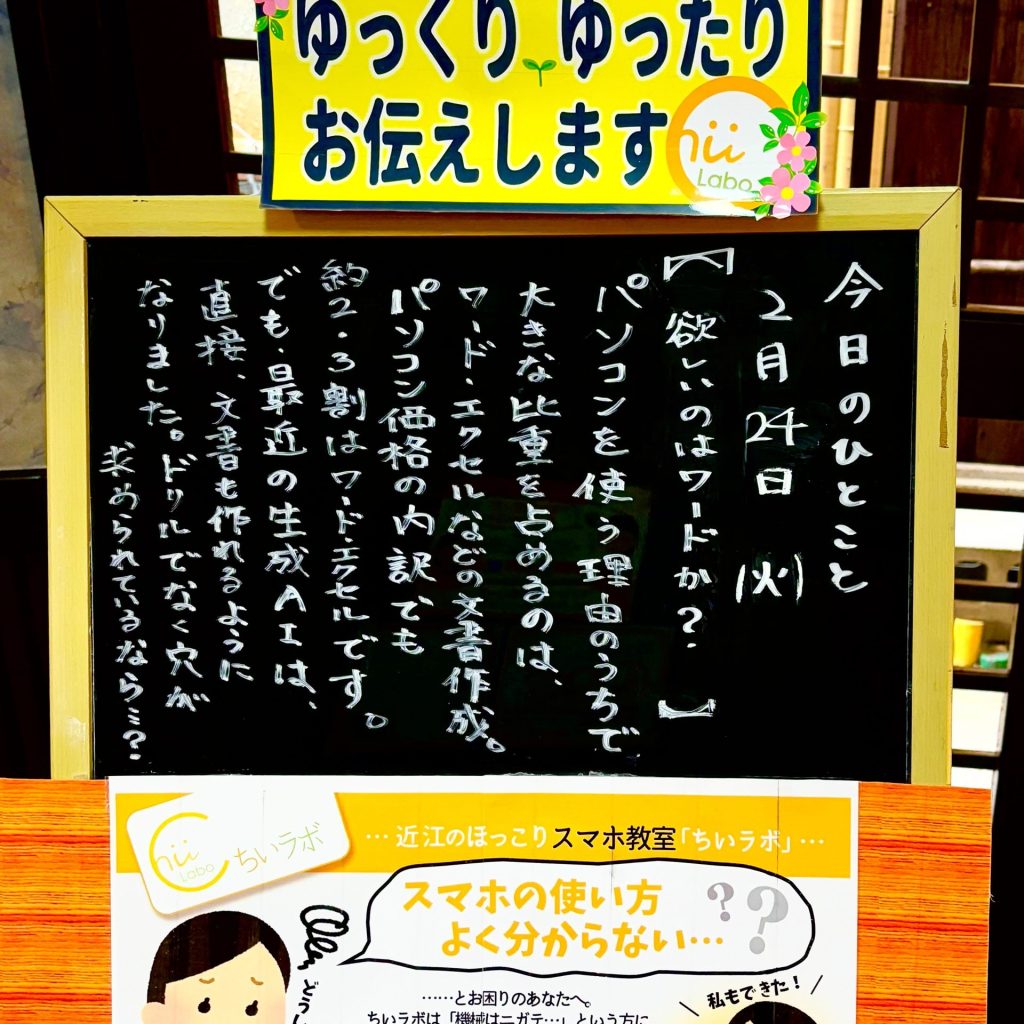 ゆっくり ゆったり
お伝えします
hii
Labo
今日のひとこと
2月24日(火)
【欲しいのはワードか?】
パソコンを使う理由のうちで
大きな比重を占めるのは、
ワード・エクセルなどの文書作成。
パソコン価格の内訳でも
約2・3割はワード・エクセルです。
でも、最近の生成AIは、
直接、文書も作れるように
なりました。ドリルでなく穴が
求められているなら…?
hii
Labo
ちいラボ
…近江のほっこりスマホ教室「ちいラボ」…
スマホの使い方
よく分からない…
??
……とお困りのあなたへ。
ちいラボは「機械はニガテ…」という方に
私もできた!